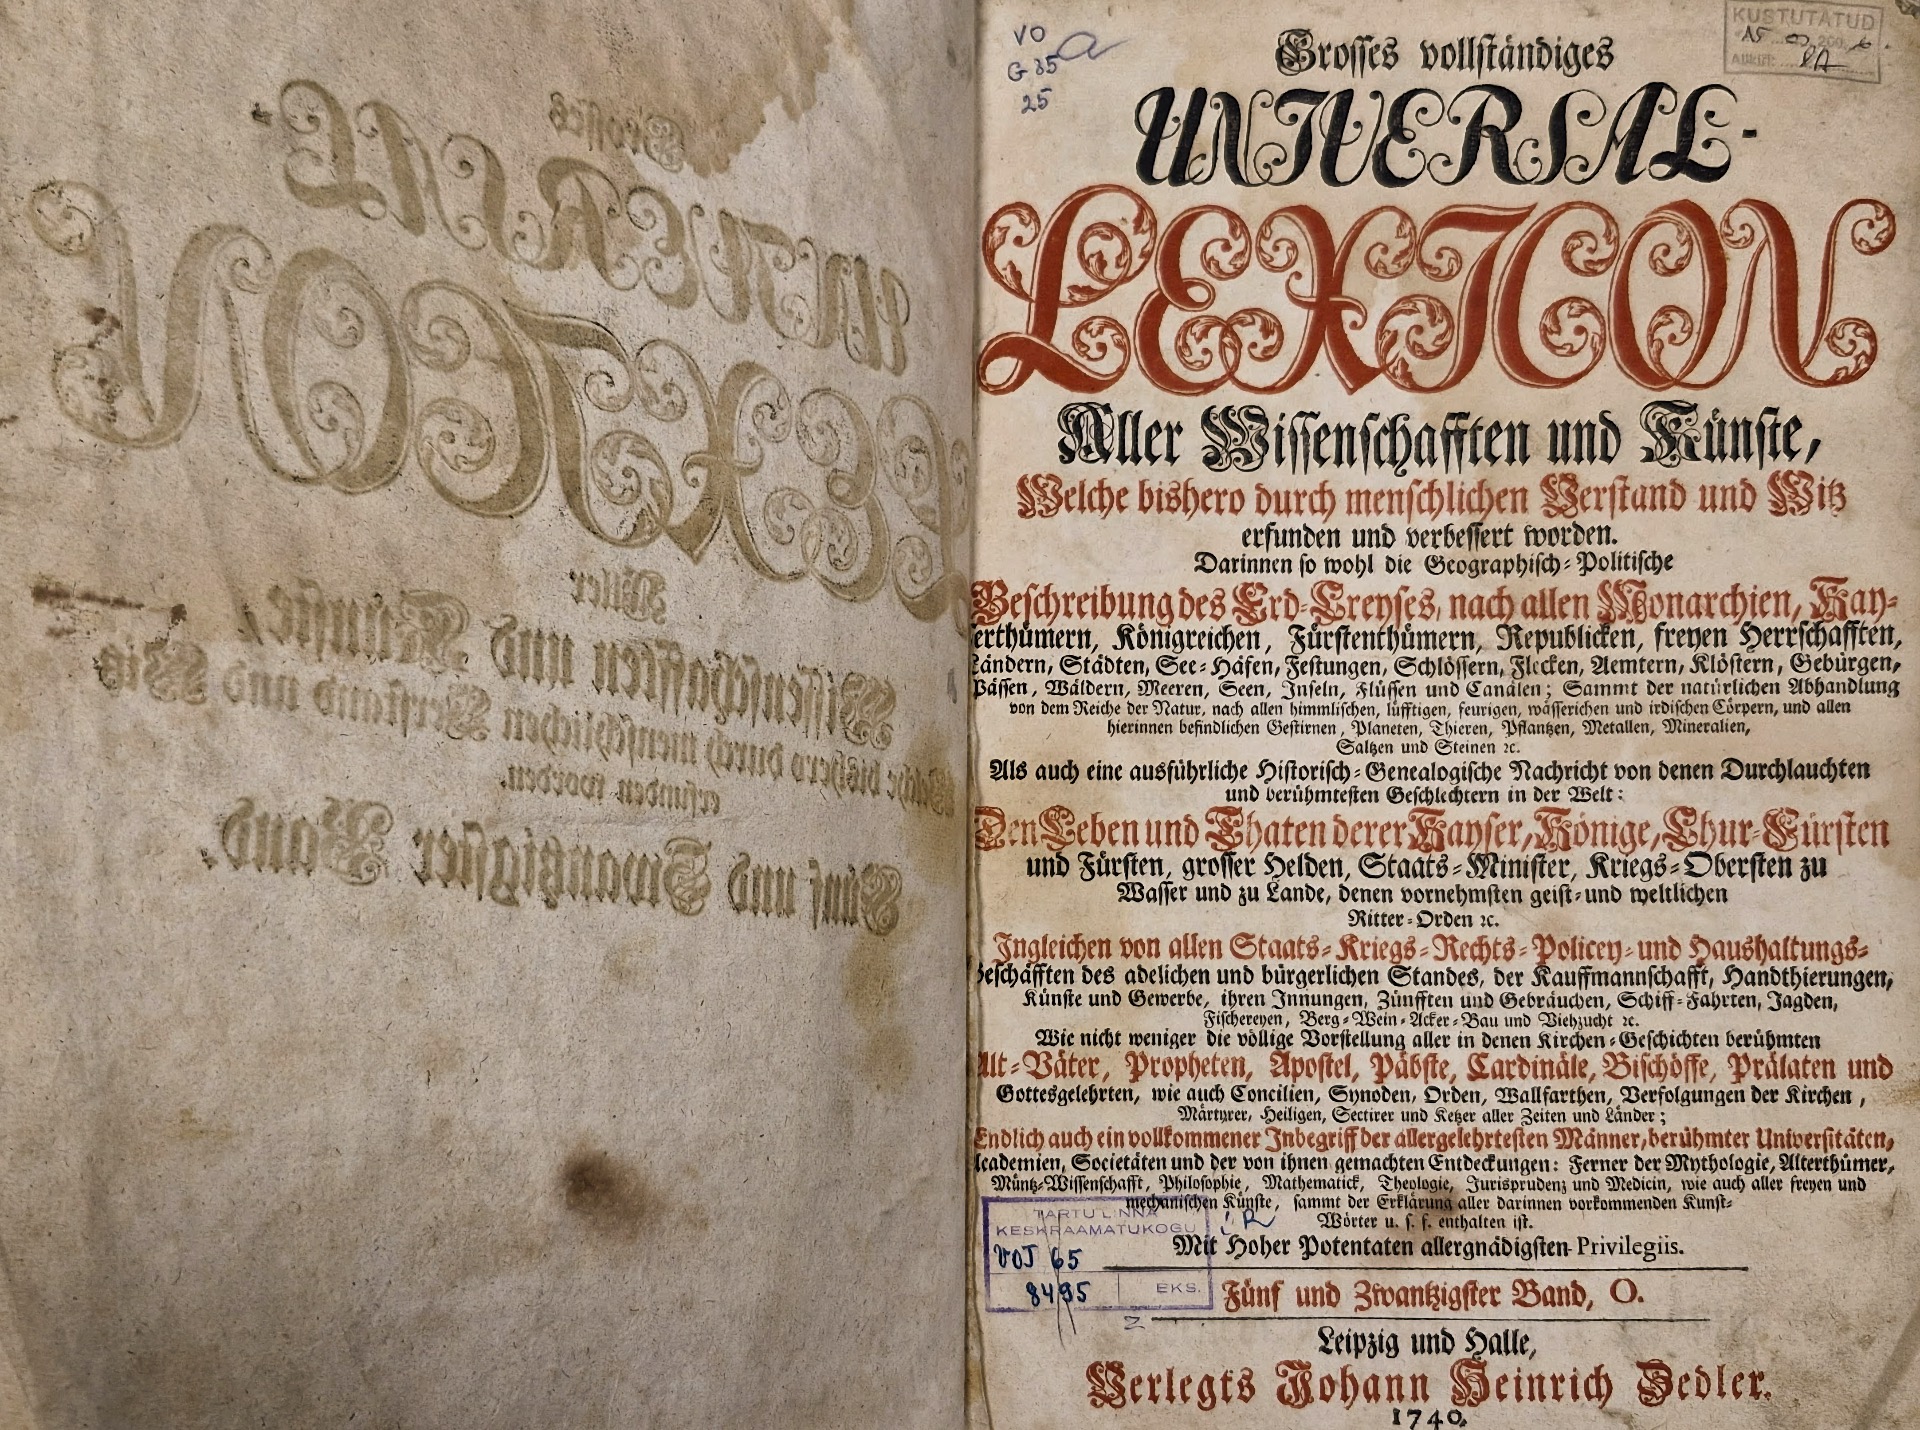 Grosses
UNIVERSAL
LEXICON
Aller
Wissenschafften und Künste,
Welche bishero durch menschlichen Verstand und Witz
erfunden worden.
Fünf und Zwantzigster Band.
VO
G 35
25
KUSTUTATUD
Grosses vollständiges
UNIVERSAL-
LEXICON
Aller Wissenschafften und Künste,
Welche bishero durch menschlichen Verstand und Witz
erfunden und verbessert worden.
Darinnen so wohl die Geographisch-Politische
Beschreibung des Erd-Creyses, nach allen Monarchien, Kay-
erthümern, Königreichen, Fürstenthümern, Republicken, freyen Herrschafften,
Ländern, Städten, See-Häfen, Festungen, Schlössern, Flecken, Aemtern, Klöstern, Gebürgen,
Pässen, Wäldern, Meeren, Seen, Inseln, Flüssen und Canälen; Sammt der natürlichen Abhandlung
von dem Reiche der Natur, nach allen himmlischen, lüfftigen, feurigen, wässerichen und irdischen Cörpern, und allen
hierinnen befindlichen Gestirnen, Planeten, Thieren, Pflantzen, Metallen, Mineralien,
Saltzen und Steinen ꝛc.
Als auch eine ausführliche Historisch-Genealogische Nachricht von denen Durchlauchten
und berühmtesten Geschlechtern in der Welt:
Den Leben und Thaten derer Kayser, Könige, Chur-Fürsten
und Fürsten, grosser Helden, Staats-Minister, Kriegs-Obersten zu
Wasser und zu Lande, denen vornehmsten geist-und weltlichen
Ritter-Orden ꝛc.
Ingleichen von allen Staats-Kriegs-Rechts-Policey-und Haushaltungs-
Geschäfften des adelichen und bürgerlichen Standes, der Kauffmannschafft, Handthierungen,
Künste und Gewerbe, ihren Innungen, Zünfften und Gebräuchen, Schiff-Fahrten, Jagden,
Fischereyen, Berg-Wein-Acker-Bau und Viehzucht ꝛc.
Wie nicht weniger die völlige Vorstellung aller in denen Kirchen-Geschichten berühmten
Alt-Väter, Propheten, Apostel, Päbste, Cardinäle, Bischöffe, Prälaten und
Gottesgelehrten, wie auch Concilien, Synoden, Orden, Wallfarthen, Verfolgungen der Kirchen,
Märtyrer, Heiligen, Sectirer und Ketzer aller Zeiten und Länder;
Endlich auch ein vollkommener Inbegriff der allergelehrtesten Männer, berühmter Universitäten,
Academien, Societäten und der von ihnen gemachten Entdeckungen: Ferner der Mythologie, Alterthümer,
Müntz-Wissenschafft, Philosophie, Mathematick, Theologie, Jurisprudenz und Medicin, wie auch aller freyen und
mechanischen Künste, sammt der Erklärung aller darinnen vorkommenden Kunst-
Wörter u. s. f. enthalten ist.
Mit Hoher Potentaten allergnädigsten Privilegiis.
TARTU LINNA
KESKRAAMATUKOGU
65
8495
EKS.
Fünf und Zwantzigster Band, O.
Leipzig und Halle,
Verlegts Johann Heinrich Zedler.
1740.